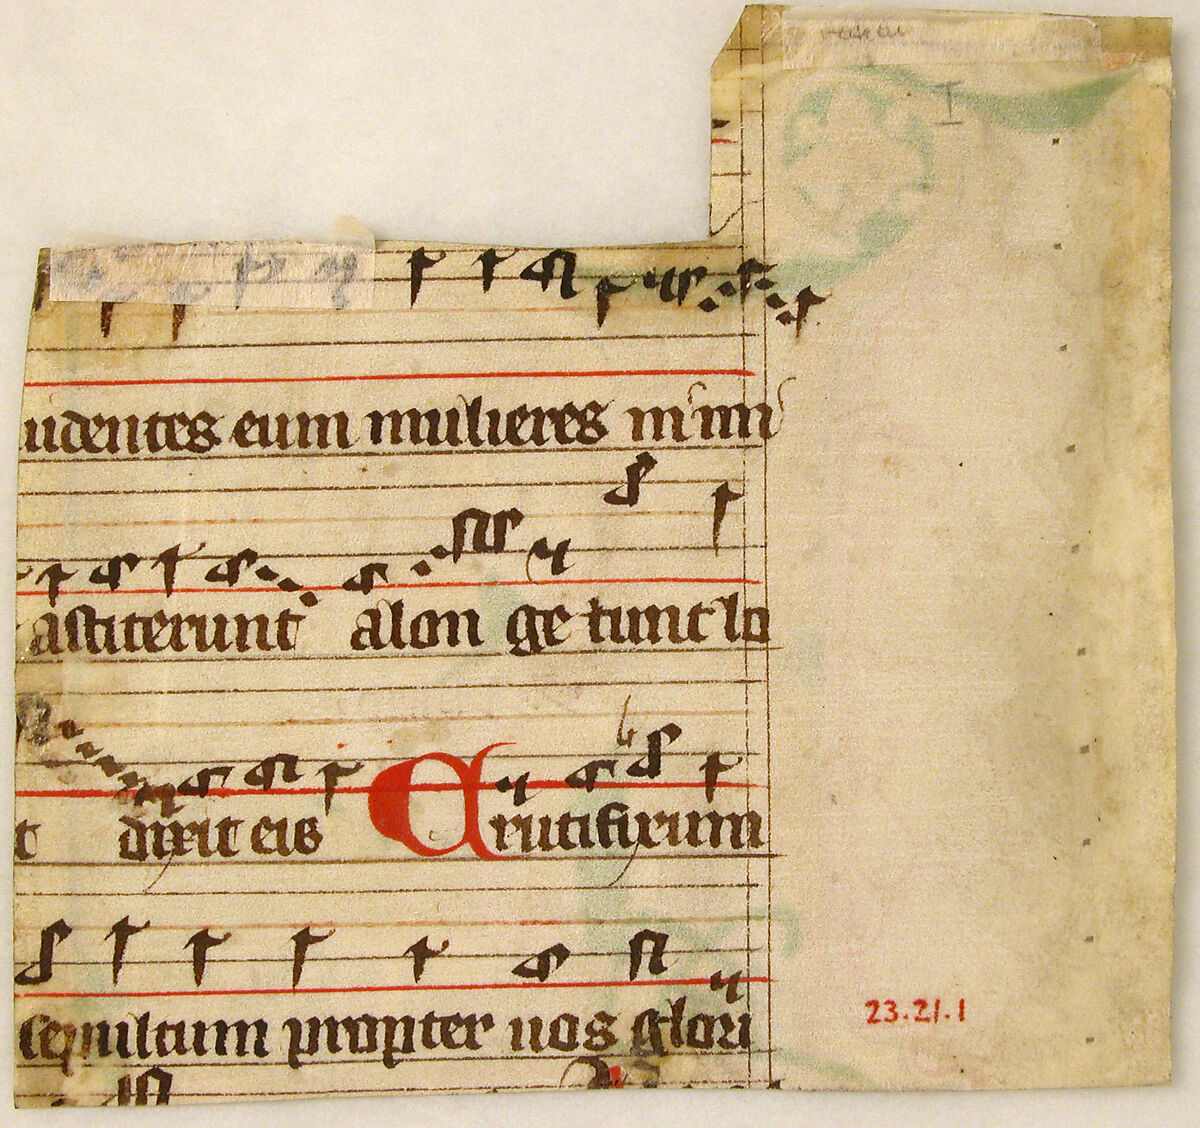 uidentes eum mulieres
astiterunt alon ge tunc lo
t dixit eis Crucifixum
sepultum propter uos glori
23.21.1